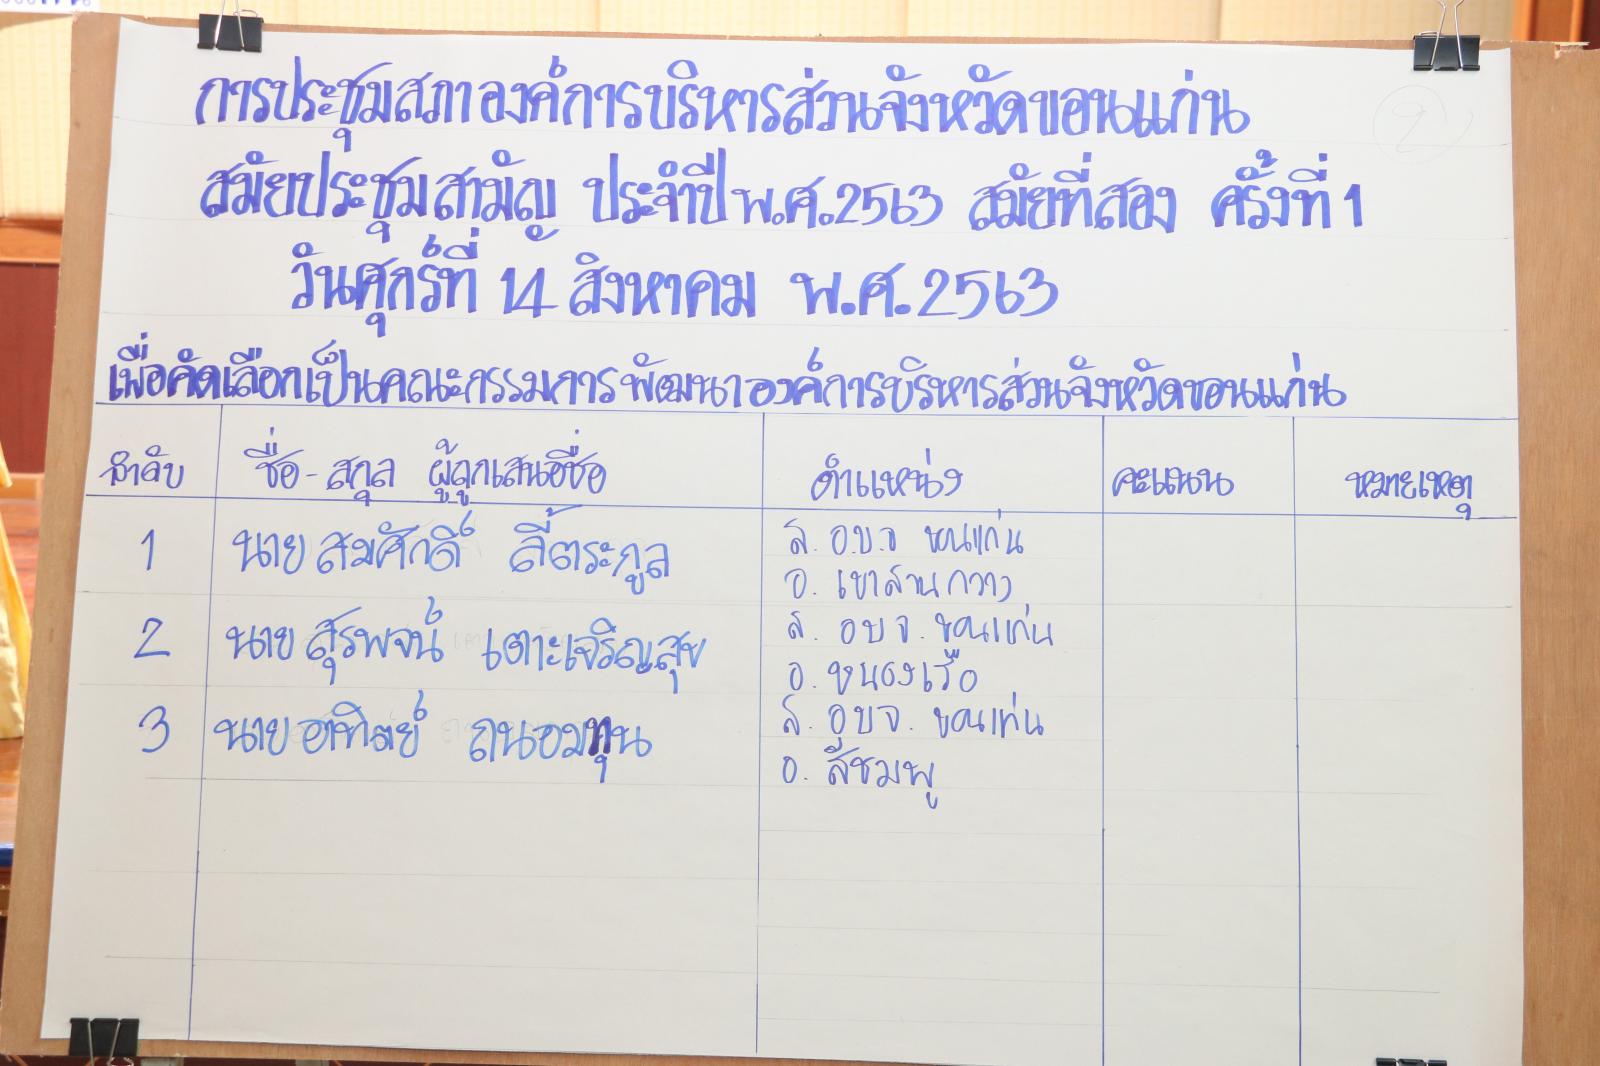 การประชุมสภาองค์การบริหารส่วนจังหวัดขอนแก่น
สมัยประชุมสามัญ ประจำปี พ.ศ.2563 สมัยที่สอง ครั้งที่ 1
วันศุกร์ที่ 14 สิงหาคม พ.ศ.2563
เพื่อคัดเลือกเป็นคณะกรรมการพัฒนาองค์การบริหารส่วนจังหวัดขอนแก่น
ลำดับ ชื่อ - สกุล ผู้ถูกเสนอชื่อ ตำแหน่ง คะแนน หมายเหตุ
1 นายสมศักดิ์ ลี้ตระกูล ส. อ.บ.จ ขอนแก่น
อ. เขาสวนกวาง
2 นายสุรพจน์ เตาะเจริญสุข ส. อบจ. ขอนแก่น
อ. หนองเรือ
3 นายอาทิตย์ ถนอมทุน ส. อบจ. ขอนแก่น
อ. สีชมพู
2